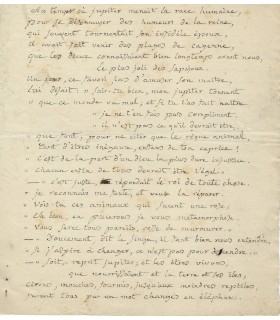 Au temps où jupiter menait la race humaine,
pour se désennuyer des humeurs de la reine,
qui souvent tourmentait son infidèle époux,
il avait fait venir des plages de cayenne,
que les dieux connaissaient bien longtemps avant nous,
le plus joli des sapajous.
Un jour, ce favori las d'amuser son maître,
lui disait: n sais-tu bien, mon jupiter tonnant
que ce monde va mal, et si tu l'as fait naître
je ne t'en fais pas compliment.
il n'est pas ce qu'il devrait être.
que font, pour ne citer que le règne animal,
Tant d'êtres inégaux, enfans de ton caprice!
C'est de la part d'un dieu la plus dure injustice.
chacun de tous devrait être l'égal.
— c'est juste, répondit le roi de toute chose.
je reconnais ma faute, et veux la réparer.
Vois-tu ces animaux qui sont une rose,
Eh bien, en pucerons je vous métamorphose
Vous serez tous pareils, cesse de murmurer.
— Doucement, dit le singe, il faut bien nous entendre,
Si j'aspire à changer, ce n'est pas pour descendre.
— soit, reprit jupiter, et les êtres vivans,
que nourrissent et la terre et les
cirons, mouches, fourmis, jusqu'aux moindres reptiles,
furent tous par un mot changés en éléphans.